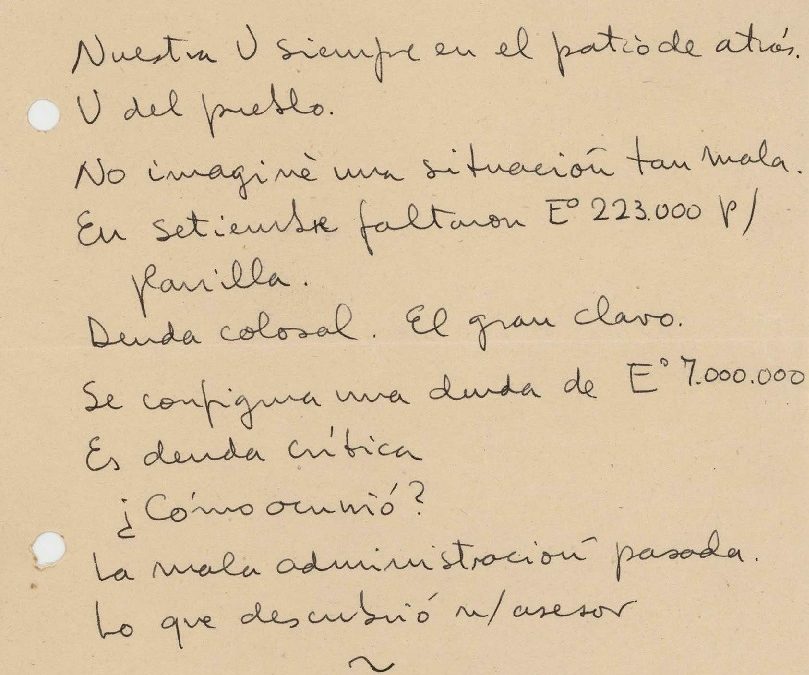 Nuestra U siempre en el patio de atrás.
U del pueblo.
No imaginé una situación tan mala.
En setiembre faltaron Eº 223.000 p/
planilla.
Deuda colosal. El gran clavo.
Se configura una deuda de Eº 7.000.000
Es deuda crítica
¿Cómo ocurrió?
La mala administración pasada.
Lo que descubrió n/asesor
~